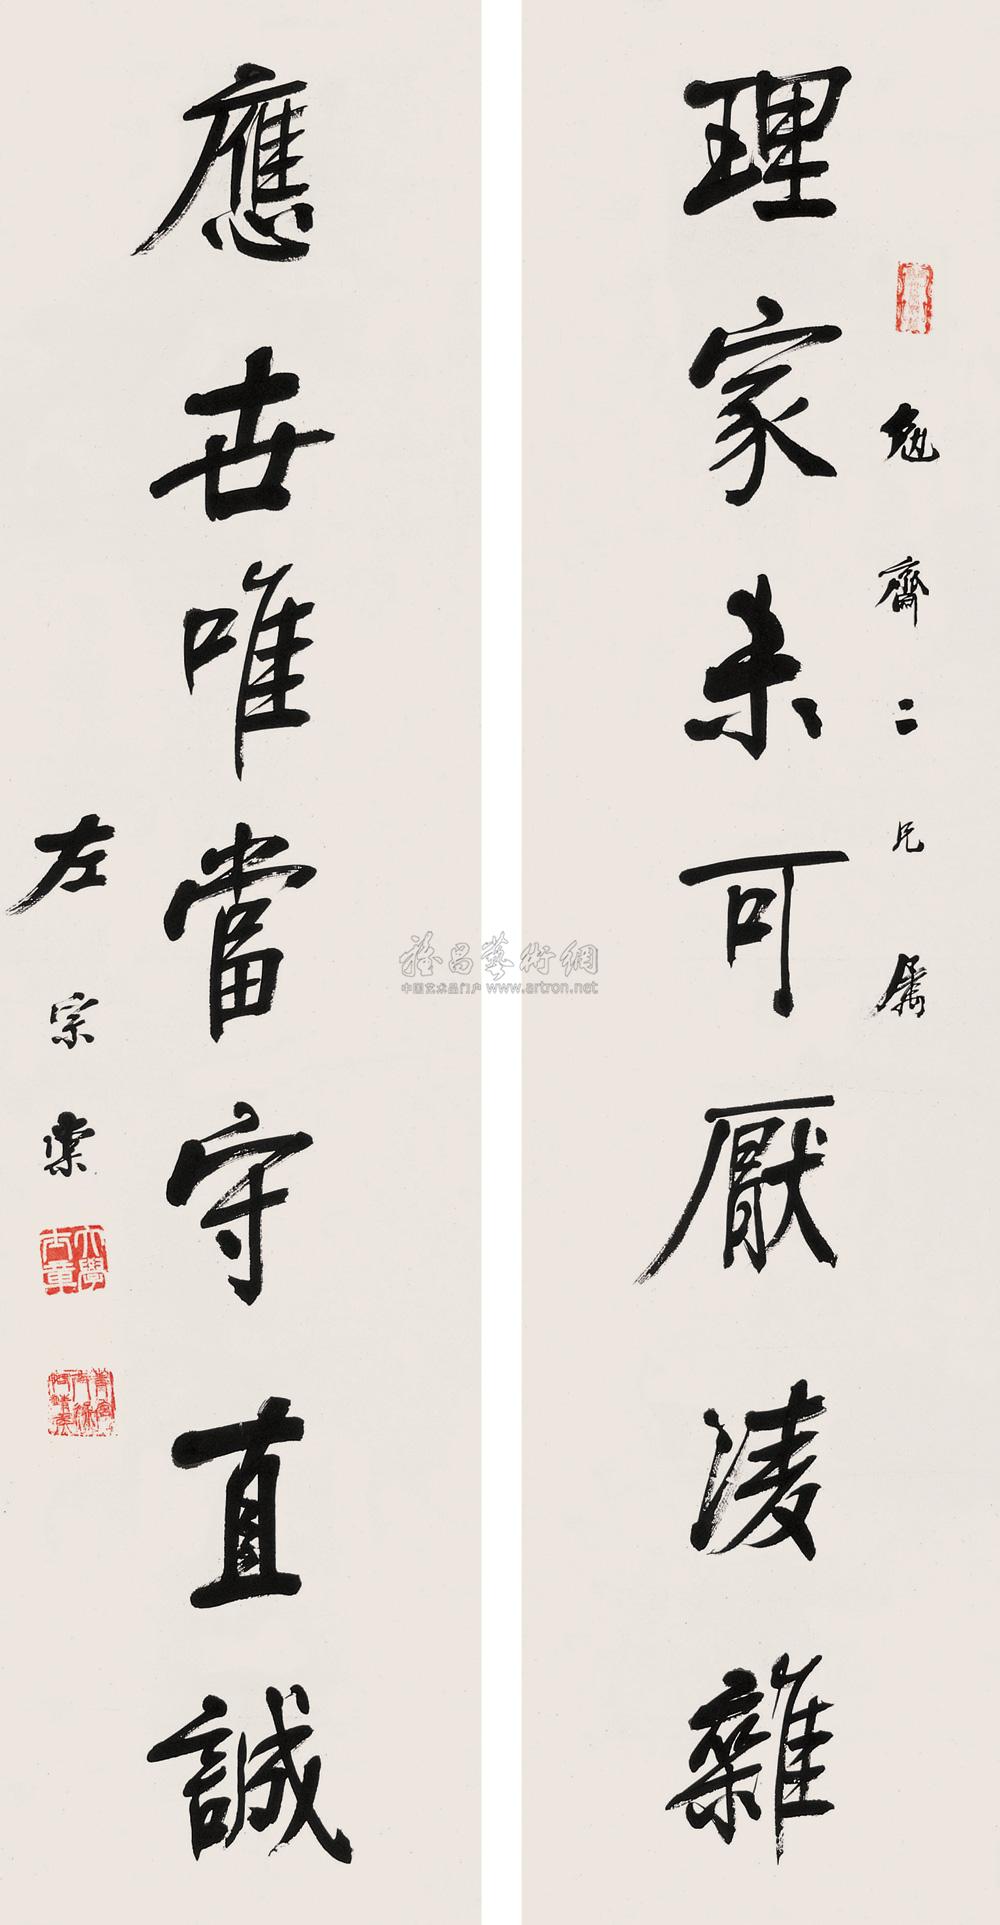 理家未可厭淩雜
勉齋二兄屬
應世唯當守直誠
左宗棠
大學士章
雅昌藝術網
中国艺术品门户 www.artron.net